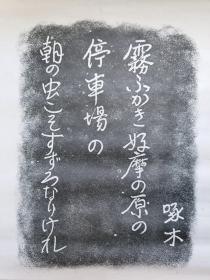 霧ふかき好摩の原の
停車場の
朝の虫こそすずろなりけれ
啄木